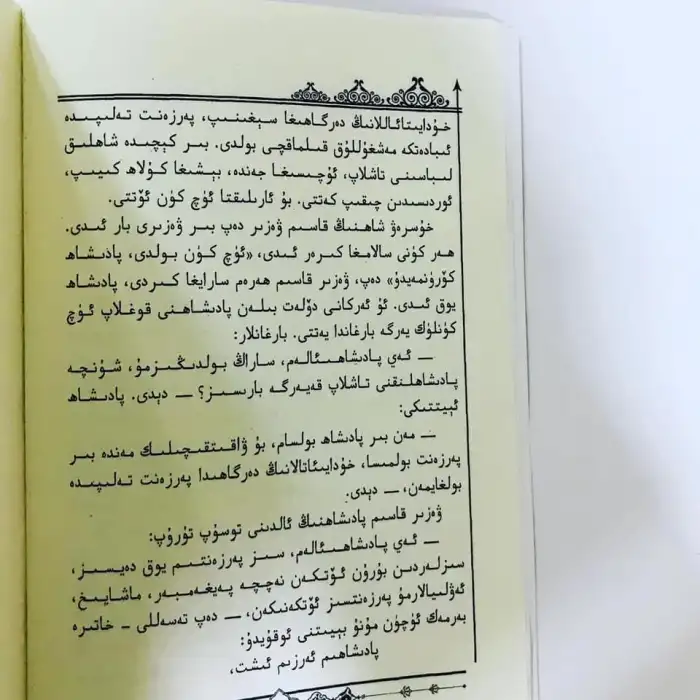 خۇدايىتائاللانىڭ دەرگاھىغا سېغىنىپ، پەرزەنت تەلىپىدە
ئىبادەتكە مەشغۇللۇق قىلماقچى بولدى. بىر كېچىدە شاھلىق
لىباسىنى تاشلاپ، ئۇچىسىغا جەندە، بېشىغا كۇلاھ كىيىپ،
ئوردىسىدىن چىقىپ كەتتى. بۇ ئارىلىقتا ئۈچ كۈن ئۆتتى.
خۇسرەۋ شاھنىڭ قاسىم ۋەزىر دەپ بىر ۋەزىرى بار ئىدى.
ھەر كۈنى سالامغا كىرەر ئىدى، «ئۈچ كۈن بولدى، پادىشاھ
كۆرۈنمەيدۇ» دەپ، ۋەزىر قاسىم ھەرەم سارايغا كىردى، پادىشاھ
يوق ئىدى. ئۇ ئەركانى دۆلەت بىلەن پادىشاھنى قوغلاپ ئۈچ
كۈنلۈك يەرگە بارغاندا يەتتى. بارغانلار:
— ئەي پادىشاھىئالەم، ساراڭ بولدىڭىزمۇ، شۇنچە
پادىشاھلىقنى تاشلاپ قەيەرگە بارىسىز؟ — دېدى. پادىشاھ
ئېيتتىكى:
— مەن بىر پادىشاھ بولسام، بۇ ۋاقىتقىچىلىك مەندە بىر
پەرزەنت بولمىسا، خۇدايىتائالانىڭ دەرگاھىدا پەرزەنت تەلىپىدە
بولغايمەن، — دېدى.
ۋەزىر قاسىم پادىشاھنىڭ ئالدىنى توسۇپ تۇرۇپ:
— ئەي پادىشاھىئالەم، سىز پەرزەنتىم يوق دەيسىز،
سىزلەردىن بۇرۇن ئۆتكەن نەچچە پەيغەمبەر، ماشايىخ،
ئەۋلىيالارمۇ پەرزەنتسىز ئۆتكەنىكەن، — دەپ تەسەللى - خاتىرە
بەرمەك ئۈچۈن مۇنۇ بېيىتنى ئوقۇيدۇ:
پادىشاھىم ئەرزىم ئىشىت،